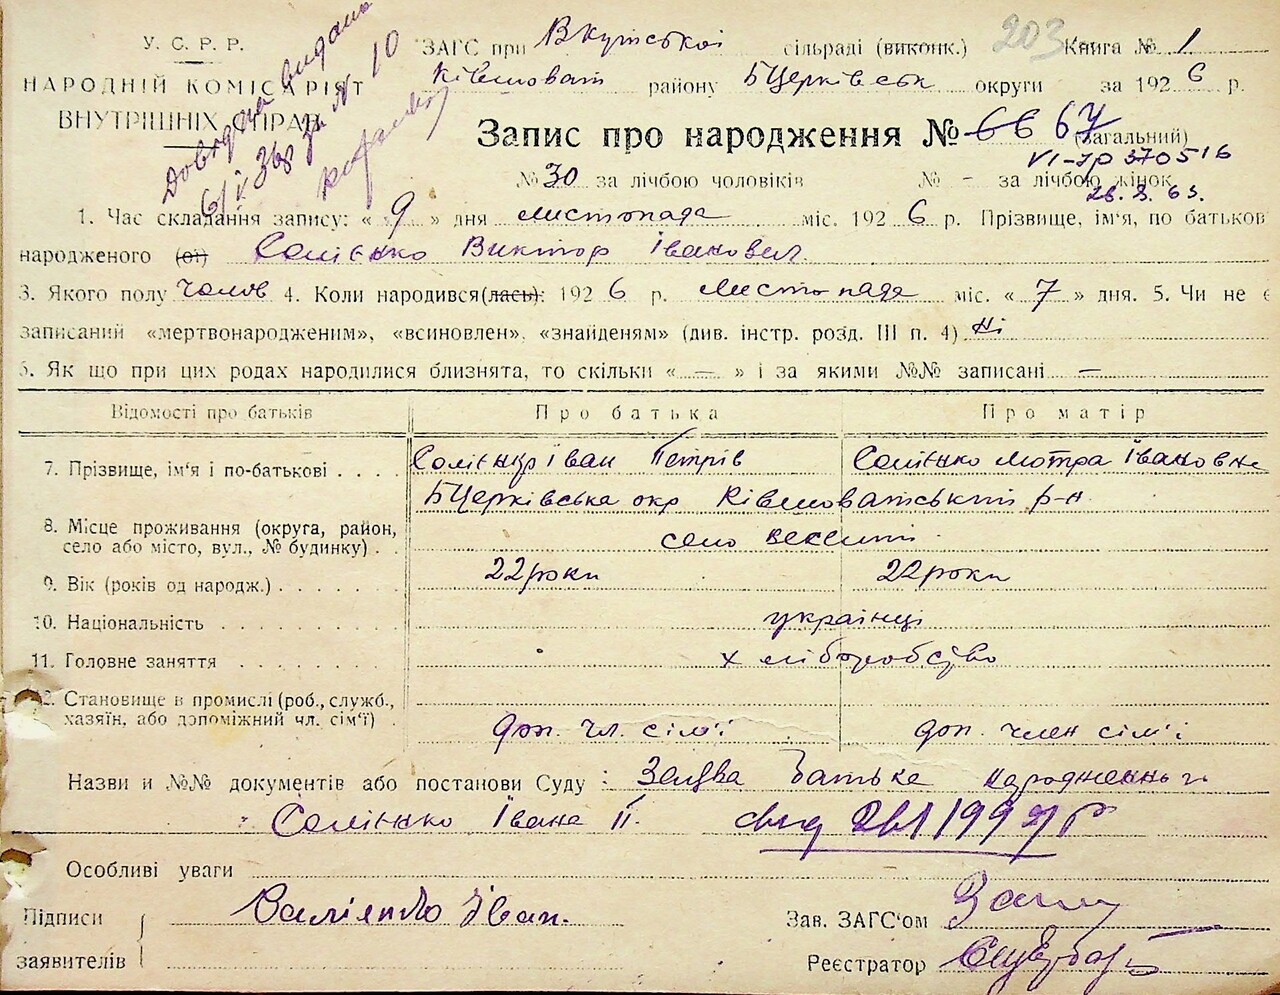 У. С. Р. Р.
НАРОДНІЙ КОМІСАРІЯТ
ВНУТРІШНІХ СПРАВ
видана
6/V за № 10
ЗАГС при сільраді (виконк.) 203 Книга № 1
району БЦерківськ округи за 1926 р.
Запис про народження № 66 67 (загальний)
VI-ЗР 370516
№ 30 за лічбою чоловіків № - за лічбою жінок
28.3.63.
1. Час складання запису: «9» дня листопада міс. 1926 р. Прізвище, ім'я, по батьков
народженого (ої) Солієнко Виктор Іванович
3. Якого полу чолов 4. Коли народився(лась): 1926 р. листопада міс. «7» дня. 5. Чи не є
записаний «мертвонародженим», «всиновлен», «знайденям» (див. інстр. розд. III п. 4) ні
6. Як що при цих родах народилися близнята, то скільки « — » і за якими №№ записані —
Відомості про батьків Про батька Про матір
7. Прізвище, ім'я і по-батькові . . . . Іван Петрів Мотра Івановна
БЦерківська окр р-н
8. Місце проживання (округа, район,
село або місто, вул., № будинку) . . село
9. Вік (років од народж.) . . . . . . . 22 роки 22 роки
10. Національність . . . . . . . . . українці
11. Головне заняття . . . . . . . . хліборобство
12. Становище в промислі (роб., служб.,
хазяїн, або допоміжний чл. сім'ї) . доп. чл. сім'ї доп. член сім'ї
Назви и №№ документів або постанови Суду : Заява батька
Івана П.
Особливі уваги
Підписи Іван.
заявителів
Зав. ЗАГС'ом
Реєстратор